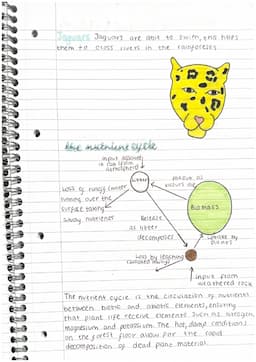 Jaguars Jaguars are able to swim, this helps
them to cross rivers in the rainforests
the nutrient cycle
input dissolved
in rain from
atmosphere
Litter
fallout as
tissues die
Loss of runoff (water
running over the
surface taking
away nutrients
Biomass
Release
as litter
decomposes
uptake by
plants
Loss by leaching
input from
weathered rock
The nutrient cycle is the circulation of nutrients
between biotic and abiotic elements, ensuring
that plant life receive elements such as nitrogen,
magnesium and potassium. The hot, damp conditions
on the forest floor allow for the rapid
decomposition of dead plant material.